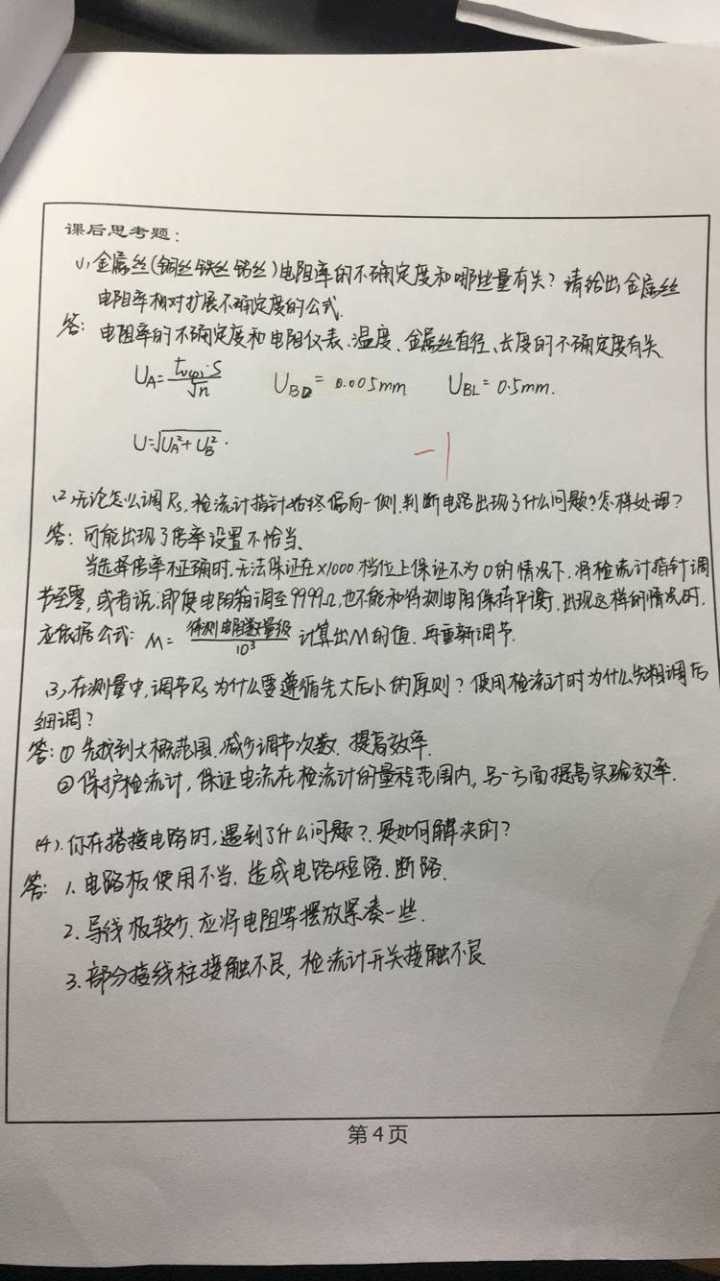 课后思考题:
(1)、金属丝(铜丝 铁丝 铝丝)电阻率的不确定度和哪些量有关?请给出金属丝
电阻率相对扩展不确定度的公式.
答: 电阻率的不确定度和电阻仪表、温度、金属丝直径、长度的不确定度有关
U_A = t_vp·S/√n U_BD = 0.005mm U_BL = 0.5mm.
U=√(U_A²+U_B²).
-1
(2)、无论怎么调Rs,检流计指针始终偏向一侧,判断电路出现了什么问题?怎样处理?
答: 可能出现了倍率设置不恰当、
当选择倍率不正确时,无法保证在×1000档位上保证不为0的情况下,将检流计指针调
节至零,或者说,即使电阻箱调至9999Ω,也不能和待测电阻保持平衡,出现这样的情况时,
应依据公式: M = 待测电阻数量级/10³ 计算出M的值,再重新调节.
(3)、在测量中,调节Rs为什么要遵循先大后小的原则?使用检流计时为什么先粗调后
细调?
答:① 先找到大概范围,减少调节次数,提高效率.
② 保护检流计,保证电流在检流计的量程范围内,另一方面提高实验效率.
(4).你在搭接电路时,遇到了什么问题?是如何解决的?
答: 1.电路板使用不当,造成电路短路.断路.
2.导线板较少,应将电阻等摆放紧凑一些.
3.部分接线柱接触不良,检流计开关接触不良
第4页